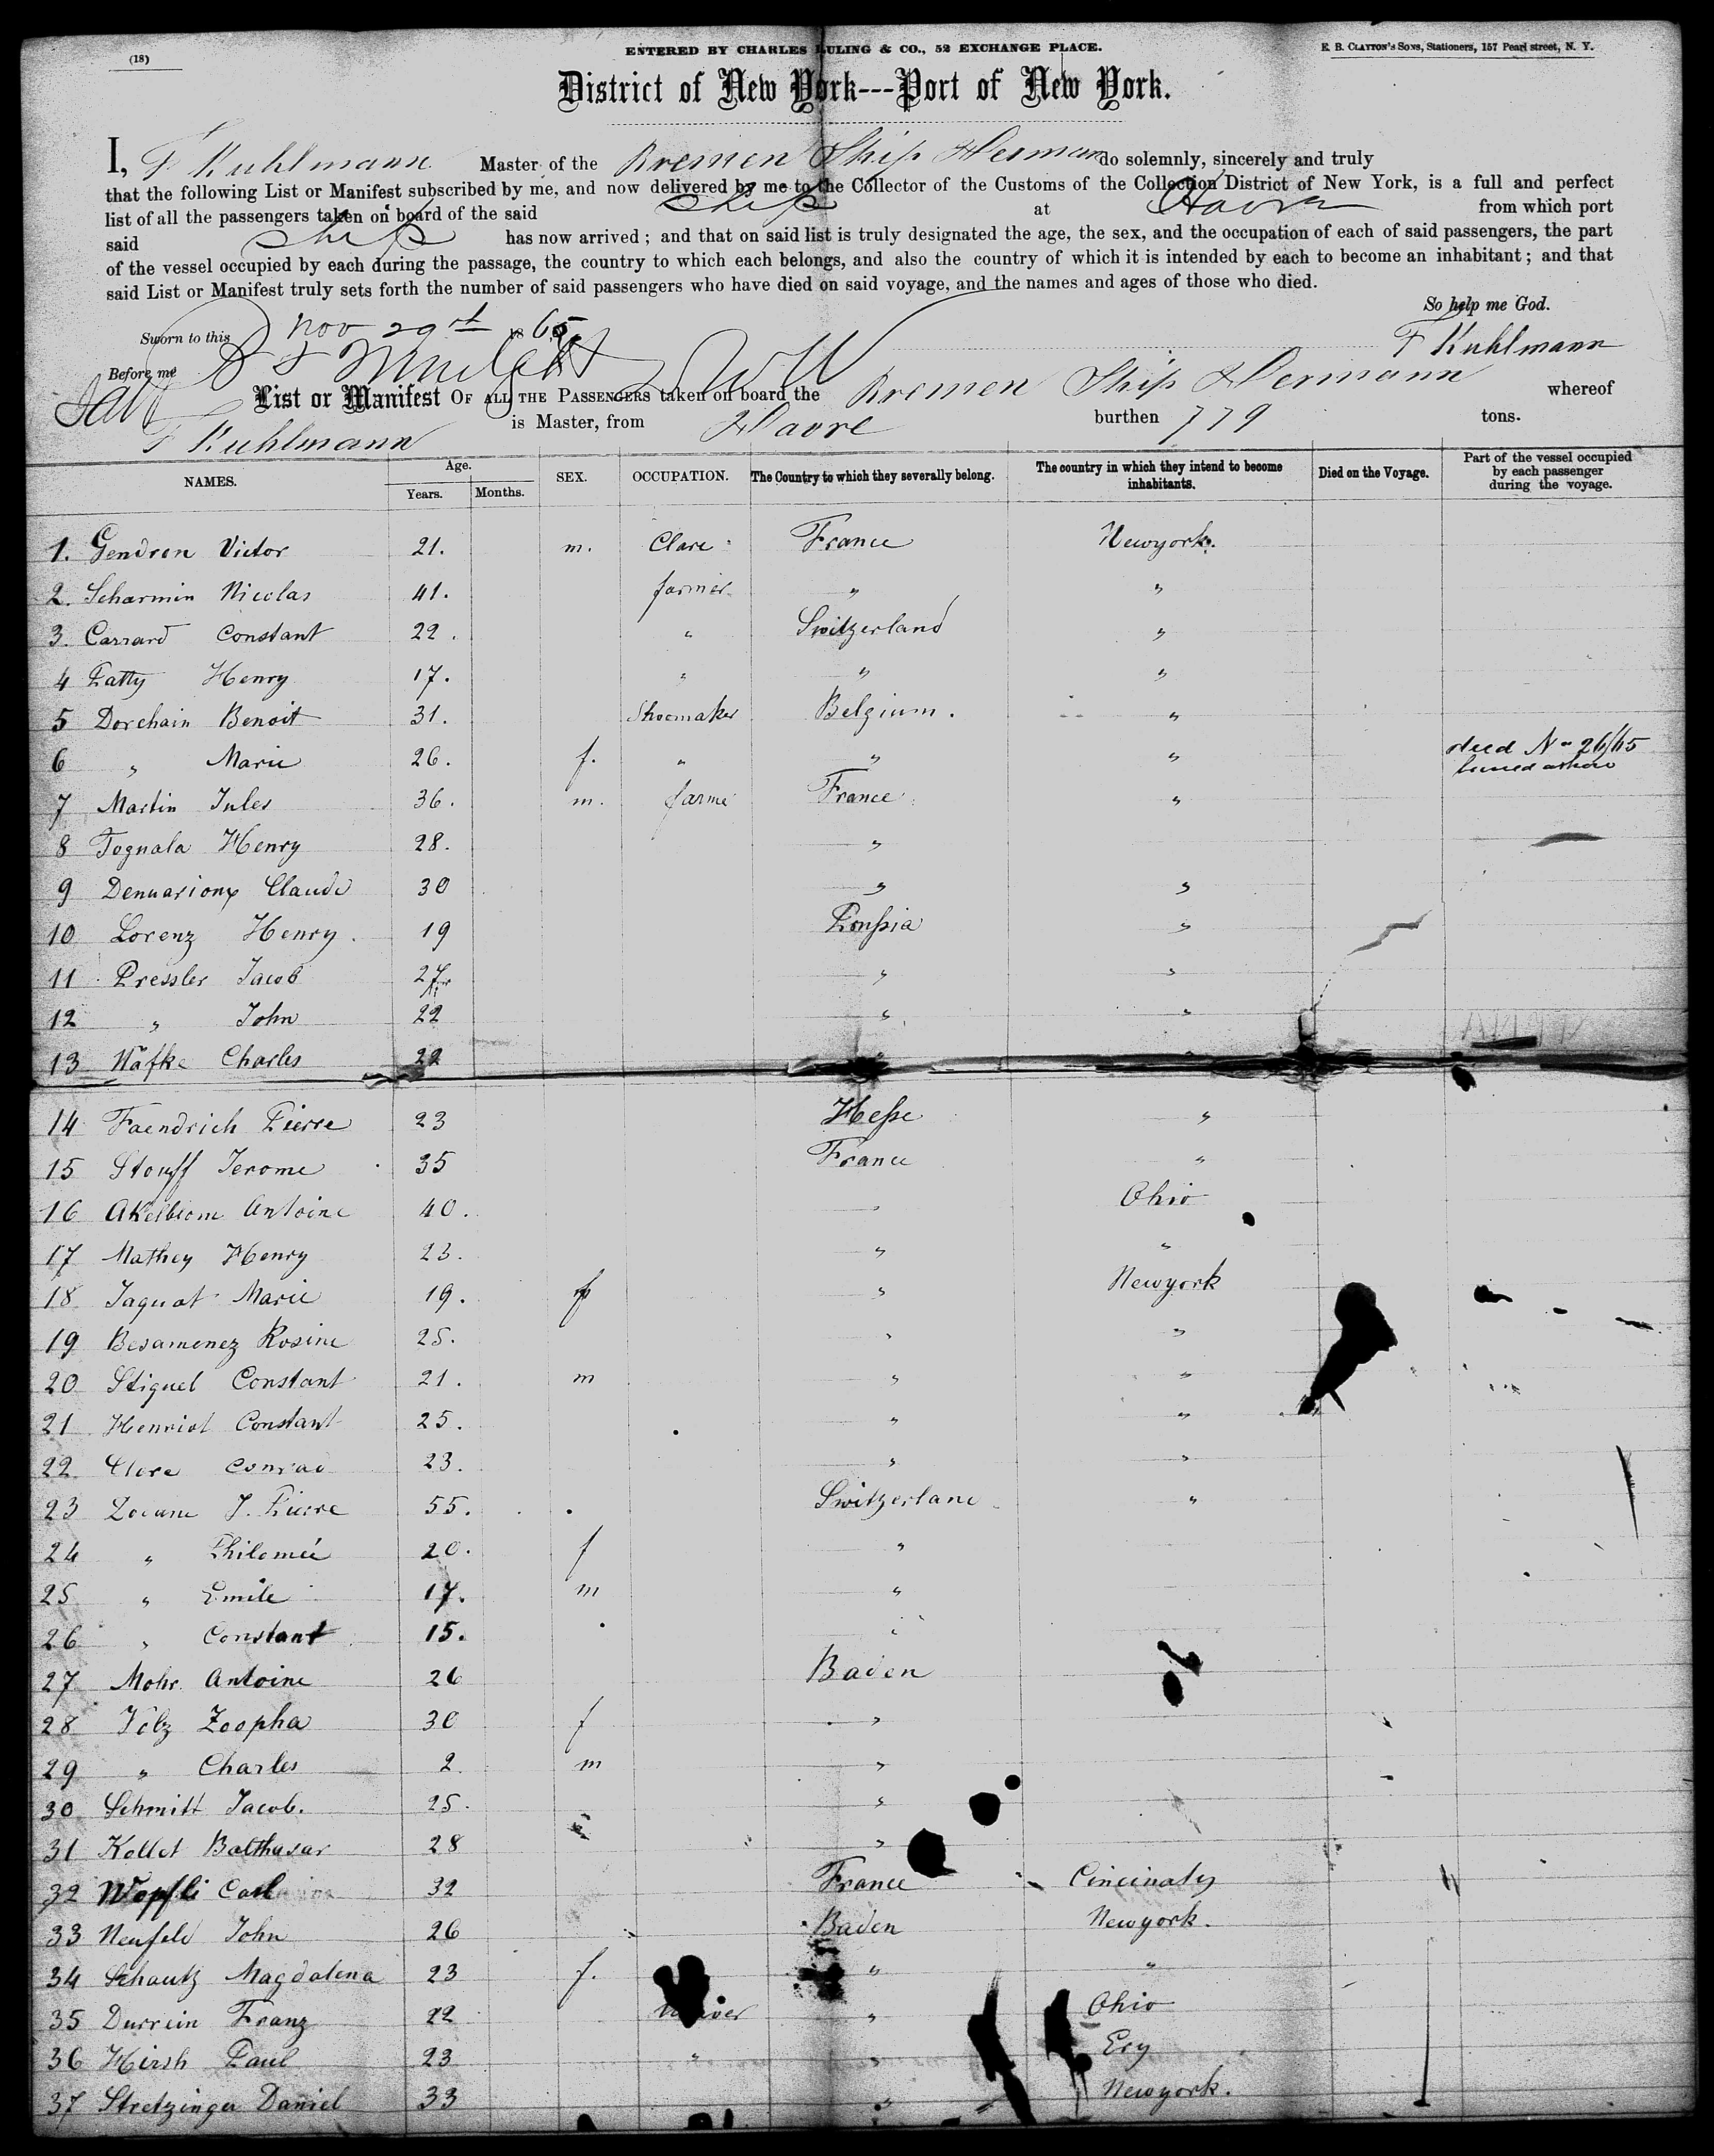 (18)
ENTERED BY CHARLES LULING & CO., 52 EXCHANGE PLACE.
E. B. CLAYTON'S SONS, Stationers, 157 Pearl street, N. Y.
District of New York---Port of New York.
I, F Kuhlmann Master of the Bremen Ship Herman do solemnly, sincerely and truly
that the following List or Manifest subscribed by me, and now delivered by me to the Collector of the Customs of the Collection District of New York, is a full and perfect
list of all the passengers taken on board of the said ship at Havre from which port
said ship has now arrived; and that on said list is truly designated the age, the sex, and the occupation of each of said passengers, the part
of the vessel occupied by each during the passage, the country to which each belongs, and also the country of which it is intended by each to become an inhabitant; and that
said List or Manifest truly sets forth the number of said passengers who have died on said voyage, and the names and ages of those who died.
So help me God.
Sworn to this Nov 29 1865
F Kuhlmann
Before me
List or Manifest OF ALL THE PASSENGERS taken on board the Bremen Ship Hermann whereof
F Kuhlmann is Master, from Havre burthen 779 tons.
NAMES. Age. Years. Months. SEX. OCCUPATION. The Country to which they severally belong. The country in which they intend to become inhabitants. Died on the Voyage. Part of the vessel occupied by each passenger during the voyage.
1. Gendron Victor 21. m. France Newyork.
2. Scharmin Nicolas 41. farmer " "
3. Carrard Constant 22. " Switzerland "
4 Patty Henry 17. " " "
5 Dorchain Benoit 31. Shoemaker Belgium. "
6 " Marie 26. f. " " "
7 Martin Jules 36. m. farme France "
8 Tognala Henry 28. "
9 Claude 30 " "
10 Lorenz Henry. 19 "
11 Pressler Jacob 27 " "
12 " John 22 " "
13 Wafke Charles 22
14 Faendrich Pierre 23 Hesse "
15 Stouff Jerome 35 France "
16 Akelbrom Antoine 40. " Ohio
17 Mathey Henry 23. " "
18 Jaquot Marie 19. f " Newyork
19 Besamenez Rosine 25. " "
20 Stiquel Constant 21. m " "
21 Henriot Constant 25. " "
22 Clore Conrad 23. " "
23 J. Pierre 55. Switzerland "
24 " Philomée 20. f "
25 " Emile 17. m "
26 " Constant 15. "
27 Mohr Antoine 26 Baden
28 Zoopha 30 f "
29 " Charles 2 m "
30 Schmitt Jacob. 25. "
31 Kollet Balthasar 28 "
32 Wopfli Carl 32 France Cincinaty
33 Neufeld John 26 Baden Newyork.
34 Schautz Magdalena 23 f. " "
35 Durrein Franz 22 " Ohio
36 Hirsh Paul 23 " " Ery
37 Stretzinger Daniel 33 " Newyork.